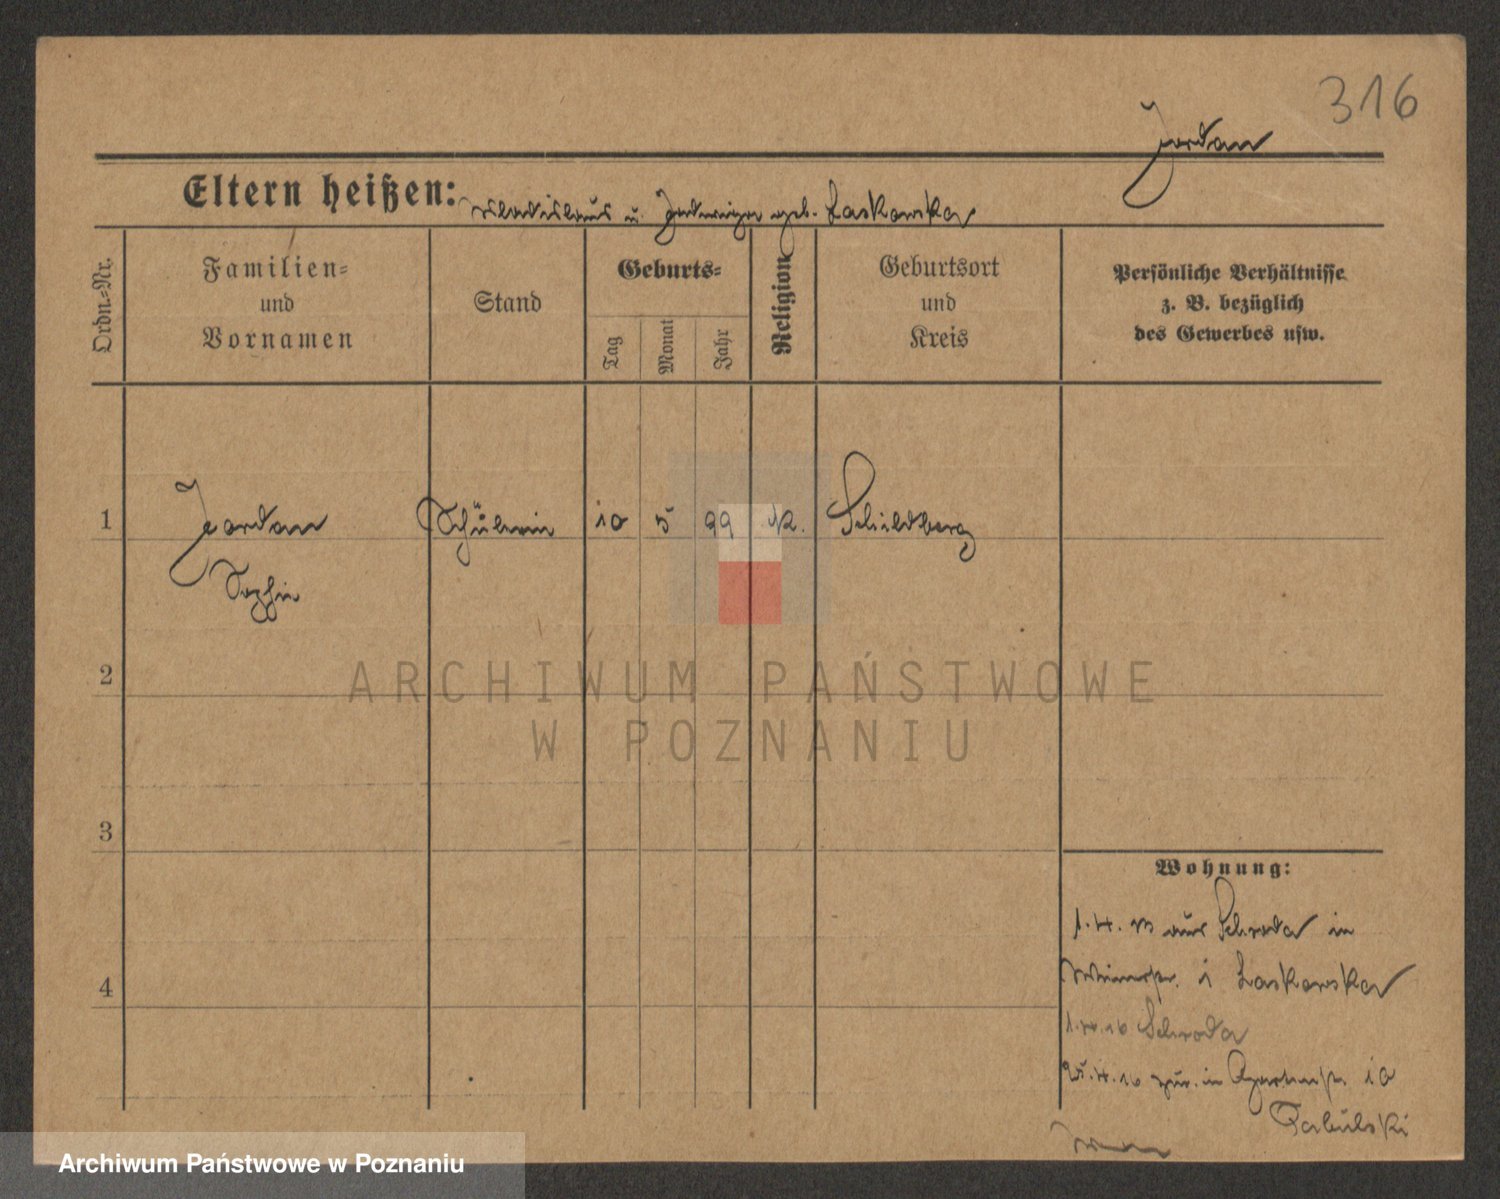 316
Jordan
Eltern heißen: Wladislaus u. Jadwiga geb. Laskowska
Ordn.=Nr.
Familien=
und
Vornamen
Stand
Geburts=
Tag
Monat
Jahr
Religion
Geburtsort
und
Kreis
Persönliche Verhältnisse
z. B. bezüglich
des Gewerbes usw.
1 Jordan Schülerin 10 5 99 K. Schildberg
Sophie
2
ARCHIWUM PAŃSTWOWE
W POZNANIU
3
4
Wohnung:
1.4.13 aus Schroda in
Laskowska
1.4.16 Schroda
25.4.16 zur. in 10
Archiwum Państwowe w Poznaniu